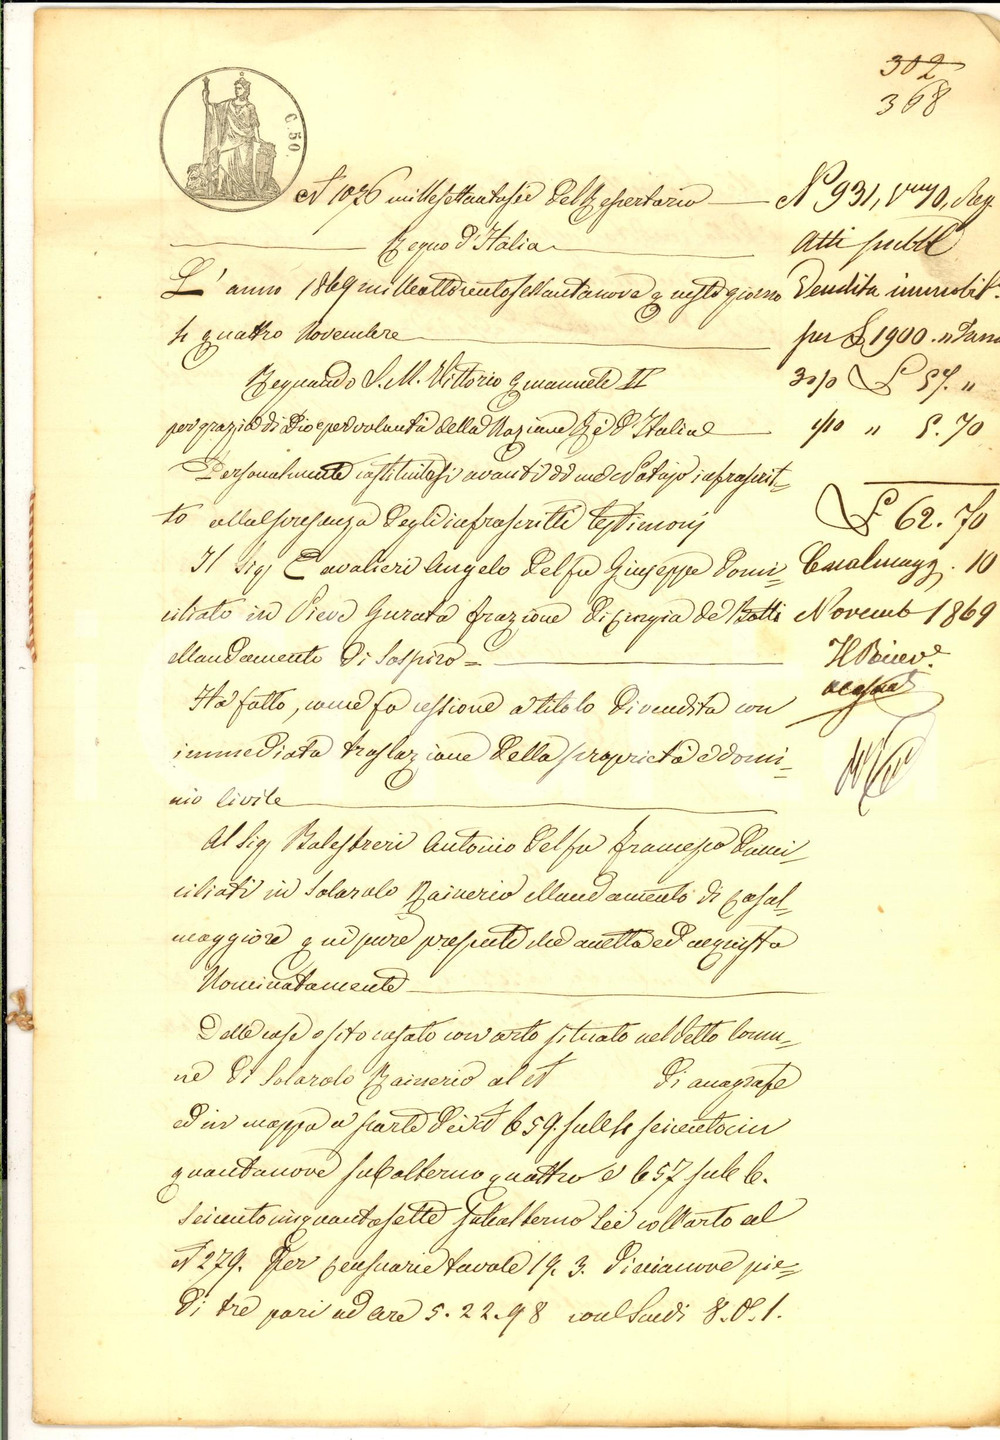 302
368
C. 50.
N 1076 millesettantasei del Repertorio
Regno d'Italia
L'anno 1869 milleottocentosessantanove questo giorno
4 quattro Novembre
Regnando S. M. Vittorio Emanuele II
per grazia di Dio e per volontà della Nazione Rè d'Italia
Personalmente costituitosi avanti di me Notajo infrascrit-
to alla presenza degli infrascritti testimonj
Il Sig. Cavalieri Angelo del fu Giuseppe domi-
ciliato in Pieve Gurata frazione di Cingia de' Botti
Mandamento di Sospiro =
Ha fatto, come fa cessione a titolo di vendita con
immediata traslazione della proprietà e domi-
nio civile
Al Sig. Balestreri Antonio del fu Francesco domi-
ciliato in Solarolo Rainerio Mandamento di Casal-
maggiore quì pure presente che accetta ed acquista
Nominatamente
Delle case e sito casato con orto situato nel detto Comu-
ne di Solarolo Rainerio al N di anagrafe
ed in mappa a parte dei N 659. sub 4 seicentocin
quantanove subalterno quattro e 657 sub 6.
seicentocinquantasette subalterno sei coll'orto al
N 279. Per censuarie tavole 19. 3. diecianove pie-
di tre pari ad are 5. 22. 98 coll Scudi 8. 0. 1.
N 931, Vol 10, Reg.
Atti pubbl
Vendita immobil.
per L 1900. " Tassa
3 0/0 L 57. "
1/10 " 5. 70
L 62. 70
Casalmagg. 10
Novemb 1869
Il Ricev.e